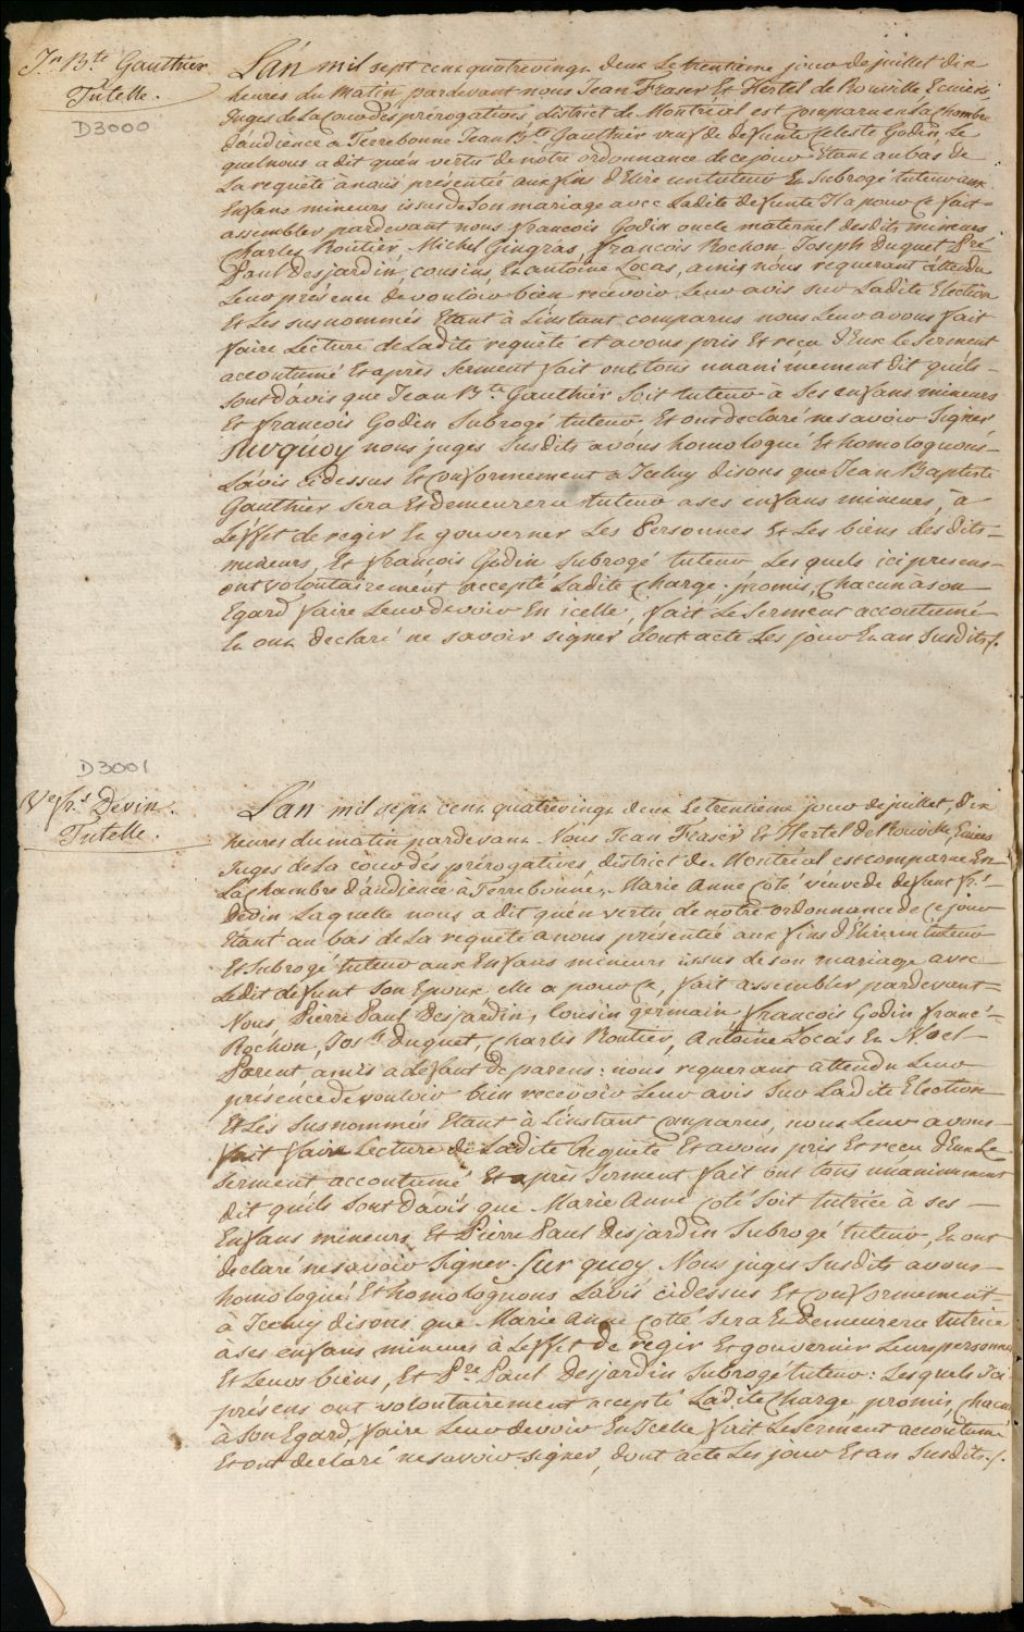 Jn Bte Gauthier
Tutelle.
D3000
L'án mil sept cent quatrevingt deux Le trentieme jour de juillet dix
heures du Matin pardevant nous Jean Fraser Et Hertel de Rouville Ecuiers
Juges de La Cour des prérogatives, district de Montréal est comparu en La chambre
d'audience a Terrebonne Jean Bte Gauthier veuf de défunte Celeste Godin, Le
quel nous a dit qu'en vertu de notre ordonnance de ce jour Etant au bas de
La requête à nous présentée aux fins d'Elire un tuteur Et Subrogé tuteur aux
Enfans mineurs issus de Son mariage avec Ladite defunte Il a pour ce fait
assembler pardevant nous françois Godin oncle maternel desdits mineurs
Charles Routier, Michel Gingras, françois Rochon Joseph Duquet Pre
Paul Desjardin, cousins, Et antoine Locas, amis nous requerant attendu
Leur présence de vouloir bien recevoir Leur avis sur Ladite Election
Et Les susnommés Etant à L'instant comparus nous Leur avons fait
faire Lecture de Ladite requête et avons pris Et reçu d'Eux Le Serment
accoutumé Et après Serment fait ont tous unanimement dit qu'ils
Sont d'avis que Jean Bte Gauthier Soit tuteur à Ses enfans mineurs
Et francois Godin Subrogé tuteur Et ont declaré ne savoir Signer
Sur quoy nous juges Susdits avons homologué Et homologuons
L'avis cidessus Et conformement a Iceluy disons que Jean Baptiste
Gauthier Sera Et demeurera tuteur a ses enfans mineurs, à
L'effet de regir Et gouverner Les Personnes Et Les biens desdits
mineurs, Et francois Godin Subrogé tuteur, Les quels ici presens
ont volontairement accepté Ladite charge, promis, chacun a son
Egard faire Leur devoir En icelle, fait Le Serment accoutumé
Et ont declaré ne savoir signer dont acte Les jour Et an Susdits./.
D3001
Ve frs Devin.
Tutelle.
L'án mil sept cent quatrevingt deux Le trentieme jour de juillet, dix
heures du matin pardevant Nous Jean Fraser Et Hertel de Rouville, Ecuiers
Juges de La cour des prérogatives, district de Montréal est comparue En
La chambre d'audience à Terrebonne, Marie Anne coté veuve de defunt fr.
Devin Laquelle nous a dit qu'en vertu de notre ordonnance de ce jour
Etant au bas de La requête a nous présentée aux fins d'Elire un tuteur
Et Subrogé tuteur aux Enfans mineurs issus de son mariage avec
Ledit defunt Son Epoux elle a pour ce, fait assembler pardevant
Nous, Pierre Paul Desjardin, Cousin germain francois Godin franc.
Rochon, Josh Duquet, Charles Routier, Antoine Locas Et Noel
Parent, amis a défaut de parens: nous requerant attendu Leur
présence de vouloir bien recevoir Leur avis Sur Ladite Election
Et Les Susnommés Etant à L'instant comparus, nous Leur avons
fait faire Lecture de Ladite Requête Et avons pris Et recu d'Eux Le
Serment accoutumé Et après Serment fait ont tous unanimement
dit qu'ils Sont d'avis que Marie Anne coté Soit tutrice à ses
Enfans mineurs Et Pierre Paul Desjardin Subrogé tuteur, Et ont
declaré ne savoir Signer. Sur quoy Nous juges Susdits avons
homologué Et homologuons L'avis cidessus Et conformement
à Iceluy disons que Marie Anne cotté Sera Et demeurera tutrice
à ses enfans mineurs à L'effet de régir Et gouverner Leurs personnes
Et Leurs biens, Et Pre Paul Desjardin Subrogé tuteur: Lesquels Ici
présens ont volontairement accepté Ladite Charge promis, chacun
à Son Egard, faire Leur devoir En Icelle fait Le Serment accoutumé
Et ont declaré ne savoir signer, dont acte Les jour Et an Susdits./.